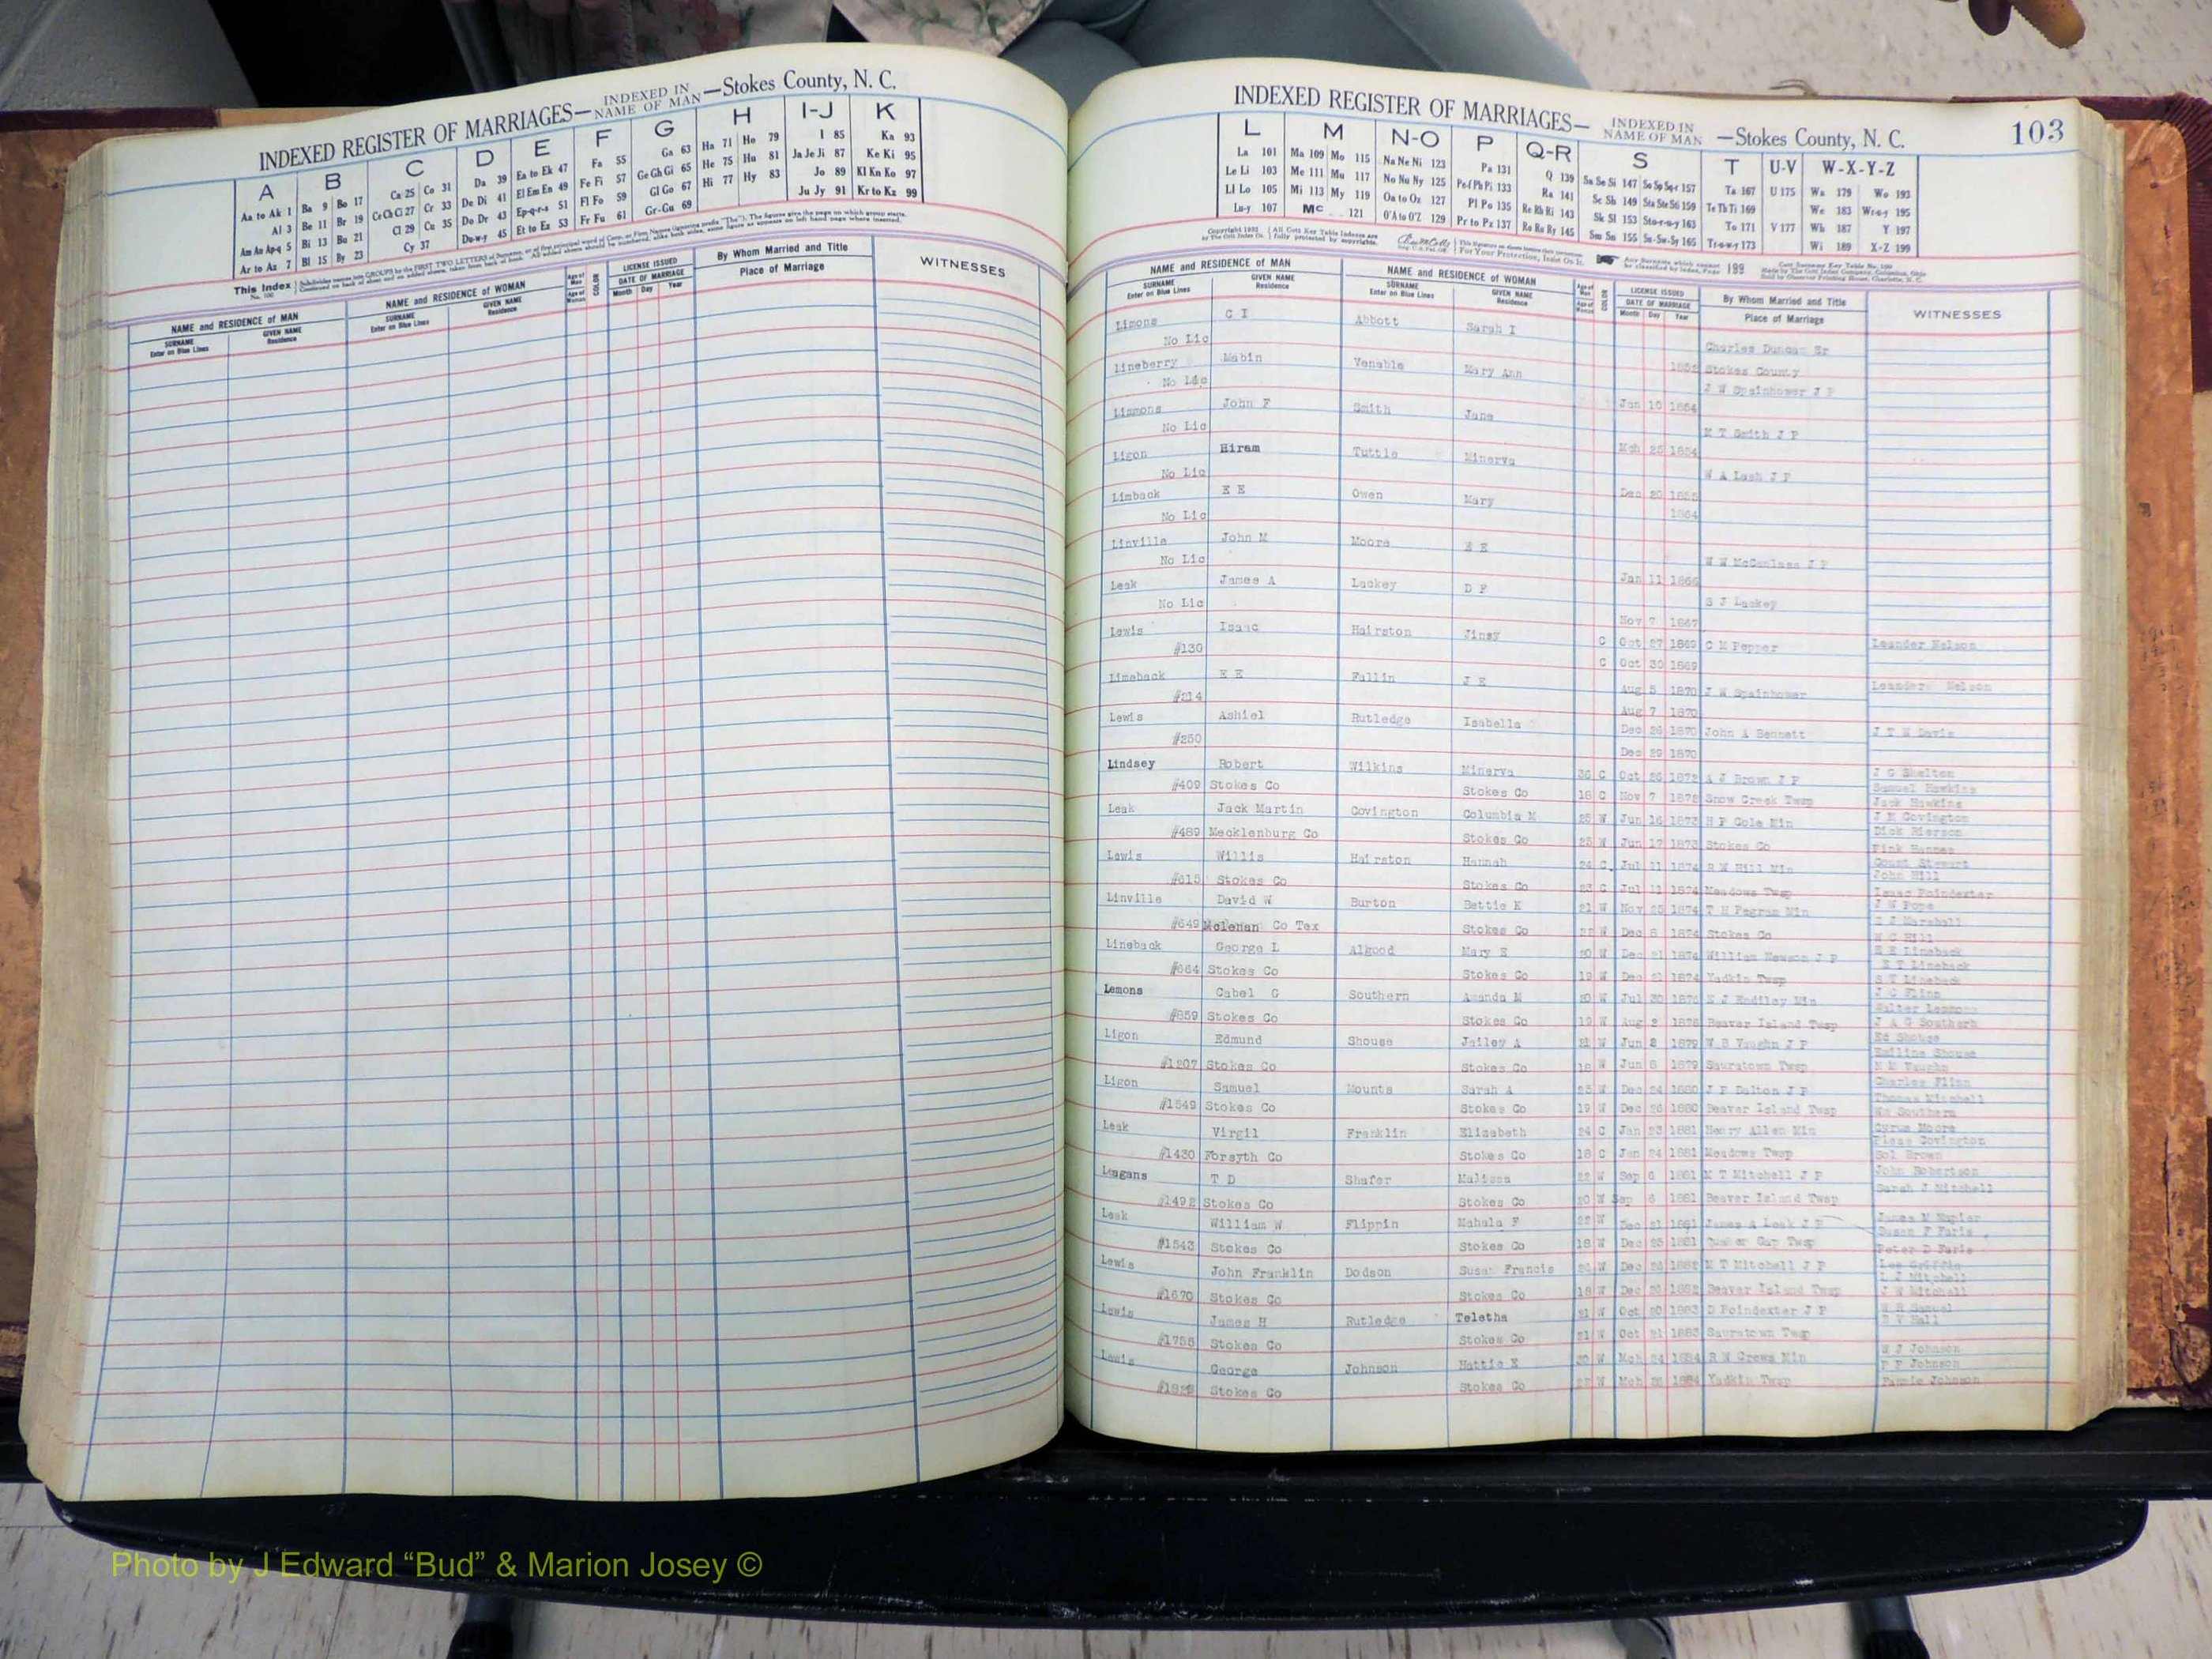 INDEXED REGISTER OF MARRIAGES— INDEXED IN NAME OF MAN —Stokes County, N. C.
A B C D E F G H I-J K
Aa to Ak 1 Ba 9 Bo 17 Ca 25 Co 31 Da 39 Ea to Ek 47 Fa 55 Ga 63 Ha 71 Ho 79 I 85 Ka 93
Al 3 Be 11 Br 19 Ce Ch Ci 27 Cr 33 De Di 41 El Em En 49 Fe Fi 57 Ge Gh Gi 65 He 75 Hu 81 Ja Je Ji 87 Ke Ki 95
Am An Ap-q 5 Bi 13 Bu 21 Cl 29 Cu 35 Do Dr 43 Ep-q-r-s 51 Fl Fo 59 Gl Go 67 Hi 77 Hy 83 Jo 89 Kl Kn Ko 97
Ar to Az 7 Bl 15 By 23 Cy 37 Du-w-y 45 Et to Ez 53 Fr Fu 61 Gr-Gu 69 Ju Jy 91 Kr to Kz 99
This Index
NAME and RESIDENCE of MAN NAME and RESIDENCE of WOMAN COLOR LICENSE ISSUED By Whom Married and Title WITNESSES
SURNAME GIVEN NAME SURNAME GIVEN NAME DATE OF MARRIAGE Place of Marriage
Enter on Blue Lines Residence Enter on Blue Lines Residence Month Day Year
INDEXED REGISTER OF MARRIAGES— INDEXED IN NAME OF MAN —Stokes County, N. C. 103
L M N-O P Q-R S T U-V W-X-Y-Z
La 101 Ma 109 Mo 115 Na Ne Ni 123 Pa 131 Q 139 Sa Se Si 147 So Sp Sq-r 157 Ta 167 U 175 Wa 179 Wo 193
Le Li 103 Me 111 Mu 117 No Nu Ny 125 Pe-f Ph Pi 133 Ra 141 Sc Sh 149 Sta Ste Sti 159 Te Th Ti 169 We 183 Wr-u-y 195
Ll Lo 105 Mi 113 My 119 Oa to Oz 127 Pl Po 135 Re Rh Ri 143 Sk Sl 153 Sto-r-u-y 163 To 171 V 177 Wh 187 Y 197
Lu-y 107 Mc 121 O'A to O'Z 129 Pr to Pz 137 Ro Ru Ry 145 Sm Sn 155 Su-Sw-Sy 165 Tr-u-w-y 173 Wi 189 X-Z 199
NAME and RESIDENCE of MAN NAME and RESIDENCE of WOMAN COLOR LICENSE ISSUED By Whom Married and Title WITNESSES
SURNAME GIVEN NAME SURNAME GIVEN NAME DATE OF MARRIAGE Place of Marriage
Enter on Blue Lines Residence Enter on Blue Lines Residence Month Day Year
Limons C I Abbott Sarah I
No Lic Charles Duncan Sr
Lineberry Mabin Venable Mary Ann Stokes County
No Lic J W Spainhower J P
Limmons John F Smith Jane Jan 10 1854
No Lic M T Smith J P
Ligon Hiram Tuttle Minerva Mch 25 1854
No Lic W A Lash J P
Limback E E Owen Mary Dec 20
No Lic 1864
Linville John M Moore
No Lic W W McCanless J P
Leak James A Lackey D F Jan 11 1866
No Lic S J Lackey
Nov 7 1867
Lewis Isaac Hairston Jinsy C Oct 27 1869 C M Pepper Leander Nelson
#130 C Oct 30 1869
Limeback E E Fallin J E Aug 5 1870 J W Spainhower Leander Nelson
#214 Aug 7 1870
Lewis Ashiel Rutledge Isabella Dec 26 1870 John A Bennett J T W Davis
#250 Dec 29 1870
Lindsey Robert Wilkins Minerva 36 C Oct 26 1872 A J Brown J P J G Shelton
#409 Stokes Co Stokes Co 18 C Nov 7 1872 Snow Creek Twsp Samuel Hawkins
Jack Hawkins
Leak Jack Martin Covington Columbia M 25 W Jun 16 1873 H P Cole Min J M Covington
#489 Mecklenburg Co Stokes Co 25 W Jun 17 1873 Stokes Co Dick Rierson
Lewis Willis Hairston Hannah 24 C Jul 11 1874 R W Hill Min
John Hill
#615 Stokes Co Stokes Co 23 C Jul 11 1874 Meadows Twsp Isaac Poindexter
Linville David W Burton Bettie K 21 W Nov 25 1874 T H Pegram Min J W Pope
#649 Mclenan Co Tex Stokes Co W Dec 1874 Stokes Co S J Marshall
W G Hill
Lineback George L Algood Mary E 20 W Dec 21 1874 William Newson J P
#664 Stokes Co Stokes Co 19 W Dec 21 1874 Yadkin Twsp
Lemons Cabel G Southern Amanda M 20 W Jul 30 Min J G Flinn
#859 Stokes Co Stokes Co 19 W Aug 2 Beaver Island Twsp J A G Southern
Ligon Edmund Shouse Jailey A 21 W Jun 8 1879 W B Vaughn J P Ed Shouse
Emiline Shouse
#1207 Stokes Co Stokes Co 18 W Jun 8 1879 Sauratown Twsp
Ligon Samuel Mounts Sarah A 25 W Dec 24 1880 J P Dalton J P Charles Flinn
Thomas Mitchell
#1549 Stokes Co Stokes Co 19 W Dec 26 1880 Beaver Island Twsp Wm Southern
Leak Virgil Franklin Elizabeth 24 C Jan 23 1881 Henry Allen Min Cyrus Moore
Pleas Covington
#1430 Forsyth Co Stokes Co 18 C Jan 24 1881 Meadows Twsp Sol Brown
Leagans T D Shafer Malissa 22 W Sep 6 1881 M T Mitchell J P John Robertson
Sarah J Mitchell
#1492 Stokes Co Stokes Co 20 W Sep 6 1881 Beaver Island Twsp
Leak William W Flippin Mahala F 22 W Dec 21 1881 James A Leak J P James M Napier
Susan F Faris
#1543 Stokes Co Stokes Co 18 W Dec 25 1881 Quaker Gap Twsp Peter D Faris
Lewis John Franklin Dodson Susan Francis W Dec 1882 M T Mitchell J P Lee Griffin
L J Mitchell
#1670 Stokes Co Stokes Co 18 W Dec 1882 Beaver Island Twsp J W Mitchell
Lewis James H Rutledge Teletha 21 W Oct 20 1883 D Poindexter J P W H Samuel
#1755 Stokes Co Stokes Co 21 W Oct 21 1883 Sauratown Twsp
Lewis George Johnson Hattie E W Mch 24 1884 R W Crews Min W J Johnson
P P Johnson
Stokes Co Stokes Co W Mch 1884 Yadkin Twsp Fannie Johnson
Photo by J Edward “Bud” & Marion Josey ©